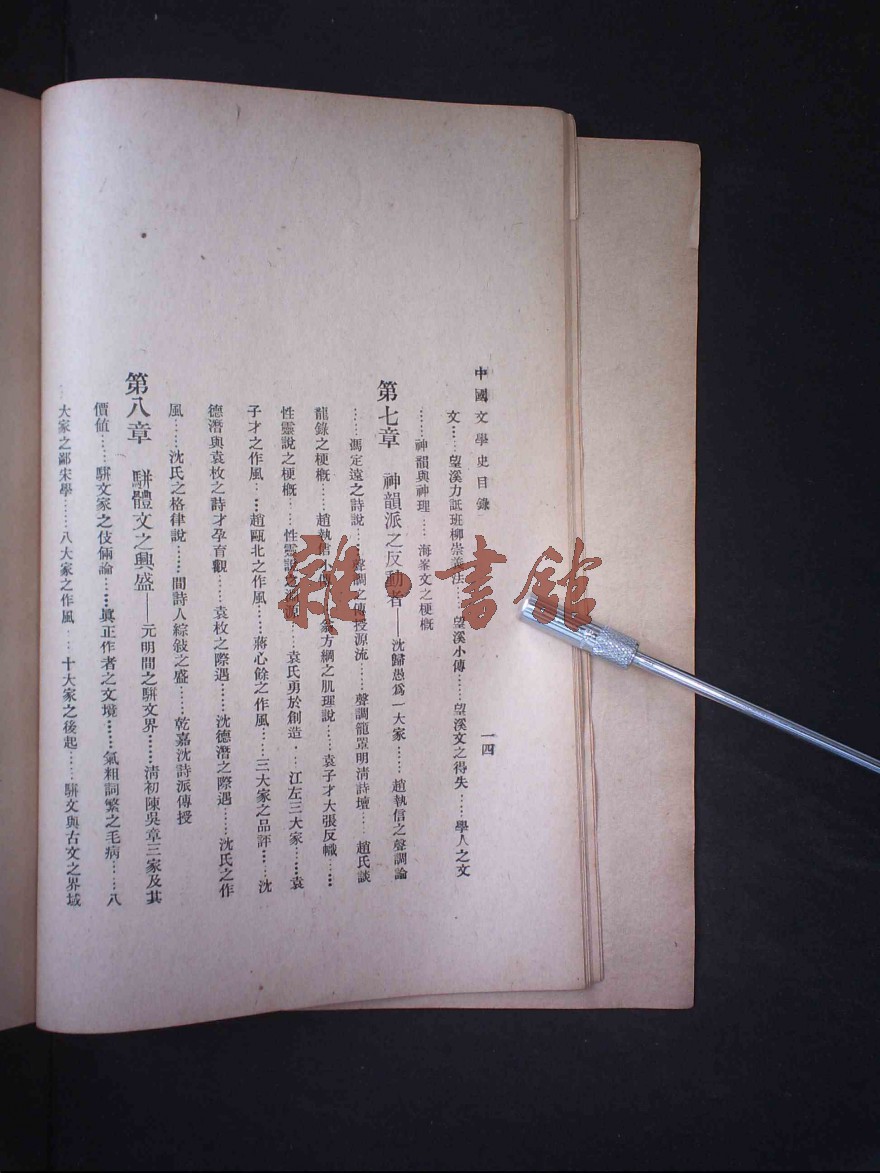 中國文學史目錄
一四
文……望溪力詆班柳崇義法……望溪小傳……望溪文之得失……學人之文
……神韻與神理……海峯文之梗概
第七章 神韻派之反動者——沈歸愚爲一大家……趙執信之聲調論
……馮定遠之詩說……聲調之傳授源流……聲調籠罩明清詩壇……趙氏談
龍錄之梗概……趙執信小傳……翁方綱之肌理說……袁子才大張反幟……
性靈說之梗概……性靈說之淵源……袁氏勇於創造……江左三大家……袁
子才之作風……趙甌北之作風……蔣心餘之作風……三大家之品評……沈
德潛與袁枚之詩才孕育觀……袁枚之際遇……沈德潛之際遇……沈氏之作
風……沈氏之格律說……間詩人綜敍之盛……乾嘉沈詩派傳授
第八章 駢體文之興盛——元明間之駢文界……清初陳吳章三家及其
價値……駢文家之伎倆論……眞正作者之文境……氣粗詞繁之毛病……八
大家之鄙宋學……八大家之作風……十大家之後起……駢文與古文之界域
雜·書館